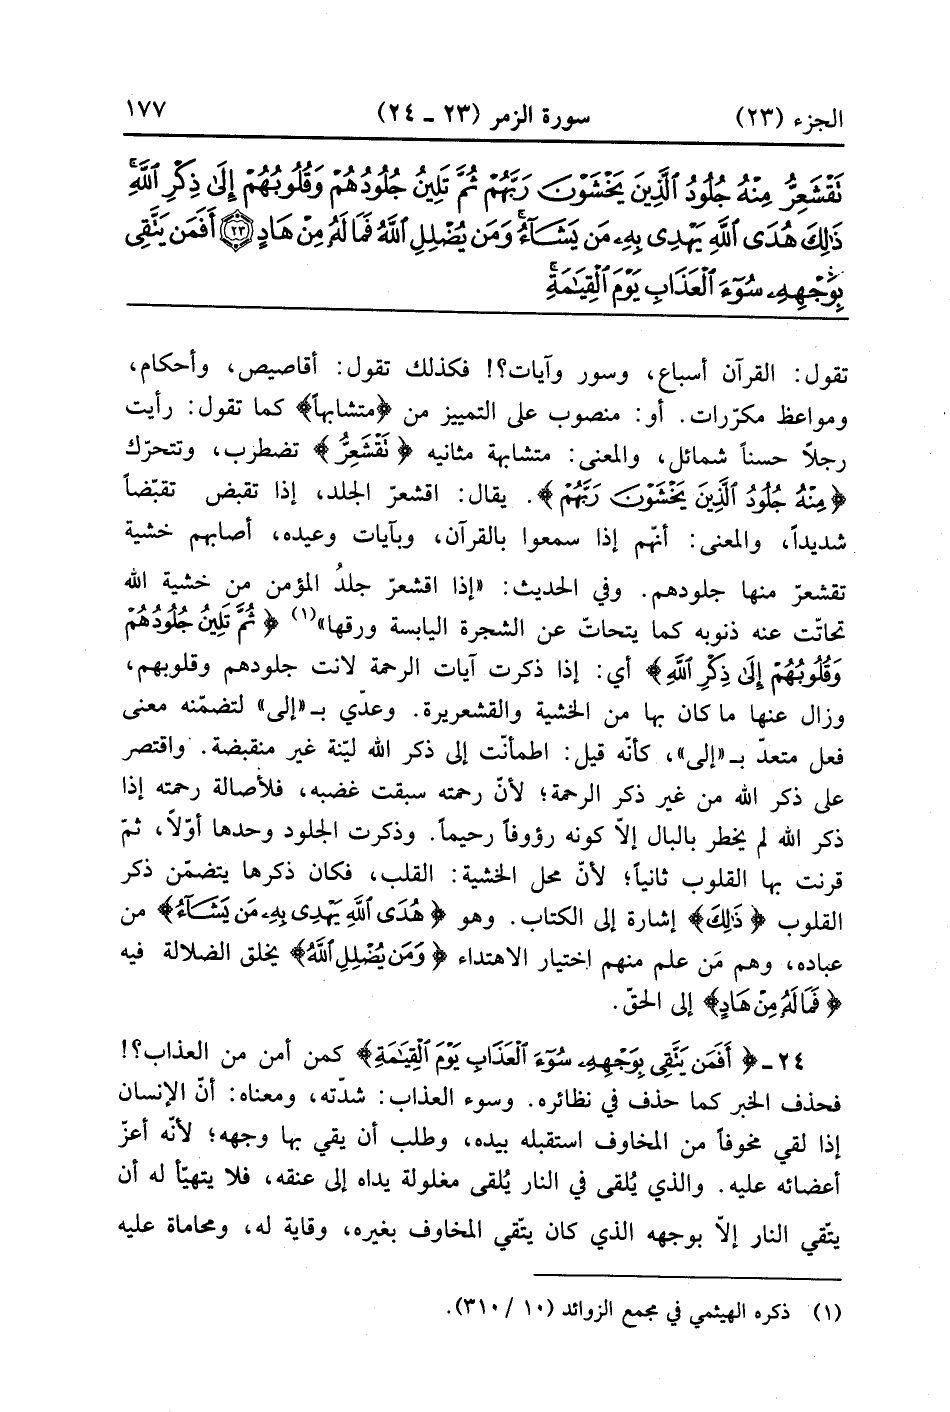 الجزء (٢٣) سورة الزمر (٢٣ ـ ٢٤) ١٧٧
تَقْشَعِرُّ مِنْهُ جُلُودُ ٱلَّذِينَ يَخْشَوْنَ رَبَّهُمْ ثُمَّ تَلِينُ جُلُودُهُمْ وَقُلُوبُهُمْ إِلَىٰ ذِكْرِ ٱللَّهِۚ
ذَٰلِكَ هُدَى ٱللَّهِ يَهْدِى بِهِۦ مَن يَشَآءُۚ وَمَن يُضْلِلِ ٱللَّهُ فَمَا لَهُۥ مِنْ هَادٍ ﴿٢٣﴾ أَفَمَن يَتَّقِى
بِوَجْهِهِۦ سُوٓءَ ٱلْعَذَابِ يَوْمَ ٱلْقِيَٰمَةِۚ
تقول: القرآن أسباع، وسور وآيات؟! فكذلك تقول: أقاصيص، وأحكام،
ومواعظ مكرّرات. أو: منصوب على التمييز من ﴿متشابهاً﴾ كما تقول: رأيت
رجلاً حسناً شمائل، والمعنى: متشابهة مثانيه ﴿تَقْشَعِرُّ﴾ تضطرب، وتتحرّك
﴿مِنْهُ جُلُودُ ٱلَّذِينَ يَخْشَوْنَ رَبَّهُمْ﴾. يقال: اقشعرّ الجلد، إذا تقبض تقبّضاً
شديداً، والمعنى: أنّهم إذا سمعوا بالقرآن، وبآيات وعيده، أصابهم خشية
تقشعرّ منها جلودهم. وفي الحديث: «إذا اقشعرّ جلدُ المؤمن من خشية الله
تحاتّت عنه ذنوبه كما يتحاتّ عن الشجرة اليابسة ورقها»(١) ﴿ثُمَّ تَلِينُ جُلُودُهُمْ
وَقُلُوبُهُمْ إِلَىٰ ذِكْرِ ٱللَّهِ﴾ أي: إذا ذكرت آيات الرحمة لانت جلودهم وقلوبهم،
وزال عنها ما كان بها من الخشية والقشعريرة. وعدّي بـ«إلى» لتضمّنه معنى
فعل متعدّ بـ«إلى»، كأنّه قيل: اطمأنّت إلى ذكر الله ليّنة غير منقبضة. واقتصر
على ذكر الله من غير ذكر الرحمة؛ لأنّ رحمته سبقت غضبه، فلأصالة رحمته إذا
ذكر الله لم يخطر بالبال إلاّ كونه رؤوفاً رحيماً. وذكرت الجلود وحدها أوّلاً، ثمّ
قرنت بها القلوب ثانياً؛ لأنّ محل الخشية: القلب، فكان ذكرها يتضمّن ذكر
القلوب ﴿ذَٰلِكَ﴾ إشارة إلى الكتاب. وهو ﴿هُدَى ٱللَّهِ يَهْدِى بِهِۦ مَن يَشَآءُ﴾ من
عباده، وهم مَن علم منهم اختيار الاهتداء ﴿وَمَن يُضْلِلِ ٱللَّهُ﴾ يخلق الضلالة فيه
﴿فَمَا لَهُۥ مِنْ هَادٍ﴾ إلى الحقّ.
٢٤ ـ ﴿أَفَمَن يَتَّقِى بِوَجْهِهِۦ سُوٓءَ ٱلْعَذَابِ يَوْمَ ٱلْقِيَٰمَةِ﴾ كمن أمن من العذاب؟!
فحذف الخبر كما حذف في نظائره. وسوء العذاب: شدّته، ومعناه: أنّ الإنسان
إذا لقي مخوفاً من المخاوف استقبله بيده، وطلب أن يقي بها وجهه؛ لأنّه أعزّ
أعضائه عليه. والذي يُلقى في النار يُلقى مغلولة يداه إلى عنقه، فلا يتهيّأ له أن
يتّقي النار إلاّ بوجهه الذي كان يتّقي المخاوف بغيره، وقاية له، ومحاماة عليه
(١) ذكره الهيثمي في مجمع الزوائد (١٠ / ٣١٠).